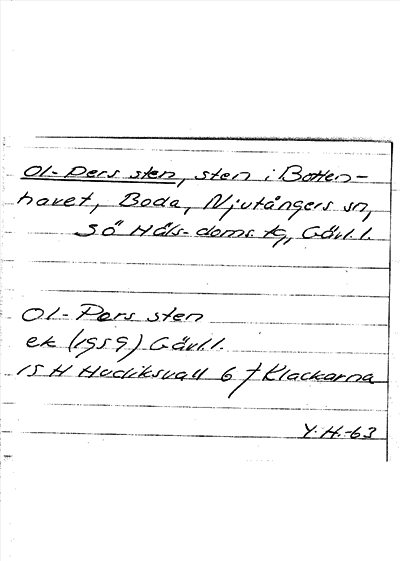 Ol-Pers sten, sten i Botten-
havet, Boda, Njutångers sn,
Sö Häls. doms tg, Gävl.l.
Ol-Pers sten
ek (1959) Gävl.l.
15 H Hudiksvall 6 f Klackarna
Y.H.-63